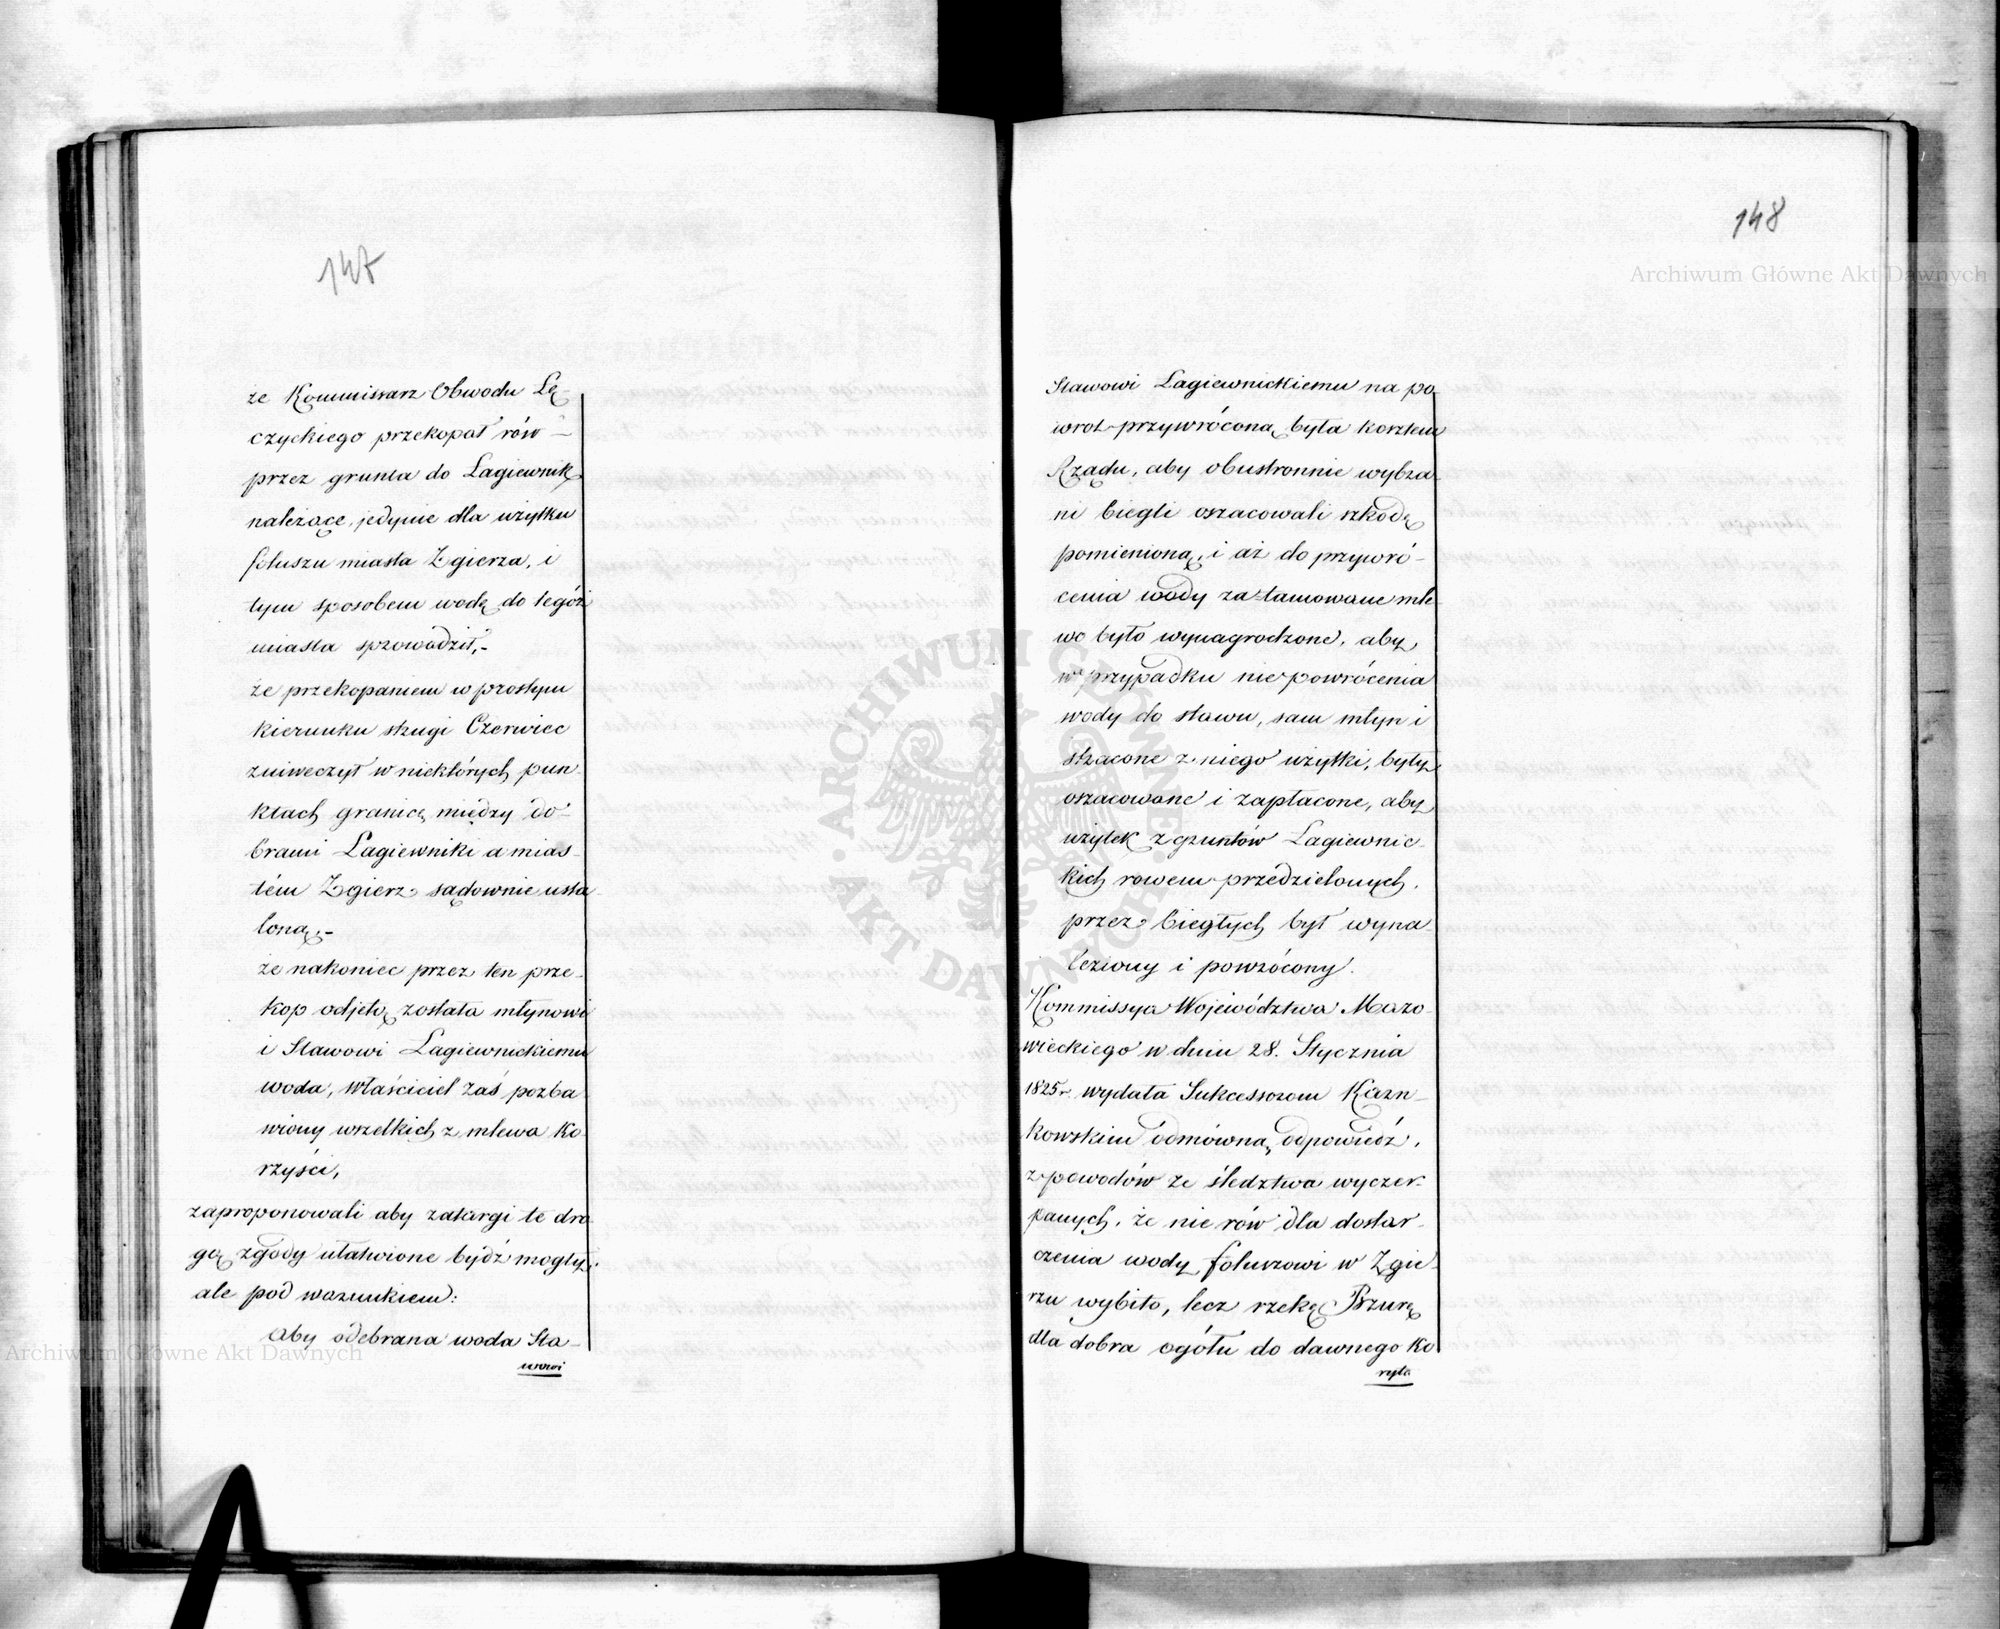 147
że Kommissarz Obwodu Łę-
czyckiego przekopał rów —
przez grunta do Łagiewnik
należące, jedynie dla użytku
foluszu miasta Zgierza, i
tym sposobem wodę do tegóż
miasta sprowadził,-
że przekopaniem w prostym
kierunku strugi Czerwiec
zniweczył w niektórych pun-
ktach granicę między do-
brami Łagiewniki a mias-
tém Zgierz sądownie usta-
loną,-
że nakoniec przez ten prze-
kop odjętą została młynowi
i Stawowi Łagiewnickiemu
woda, właściciel zaś pozba-
wiony wszelkich z mlewa ko-
rzyści,
zaproponowali aby zatargi te dro-
gą zgody ułatwione bydź mogły,
ale pod warunkiem:
aby odebrana woda Sta-
wowi
148
Stawowi Łagiewnickiemu na po-
wrot przywróconą była kosztem
Rządu, aby obustronnie wybra-
ni biegli oszacowali szkodę
pomienioną, i aż do przywró-
cenia wody zatamowane mle-
wo było wynagrodzone, aby
w przypadku nie powrócenia
wody do stawu, sam młyn i
stracone z niego użytki, były
oszacowane i zapłacone, aby
użytek z gruntów Łagiewnic-
kich rowem przedzielonych,
przez biegłych był wyna-
leziony i powrócony.
Kommissya Województwa Mazo-
wieckiego w dniu 28. Stycznia
1825r. wydała Sukcessorom Karn-
kowskim odmówną odpowiedź,
z powodów ze śledztwa wyczer-
panych, że nie rów dla dostar-
czenia wody foluszowi w Zgie-
rzu wybito, lecz rzekę Bzurę
dla dobra ogółu do dawnego ko-
ryta
Archiwum Główne Akt Dawnych
Archiwum Główne Akt Dawnych
ARCHIWUM GŁÓWNE
AKT DAWNYCH